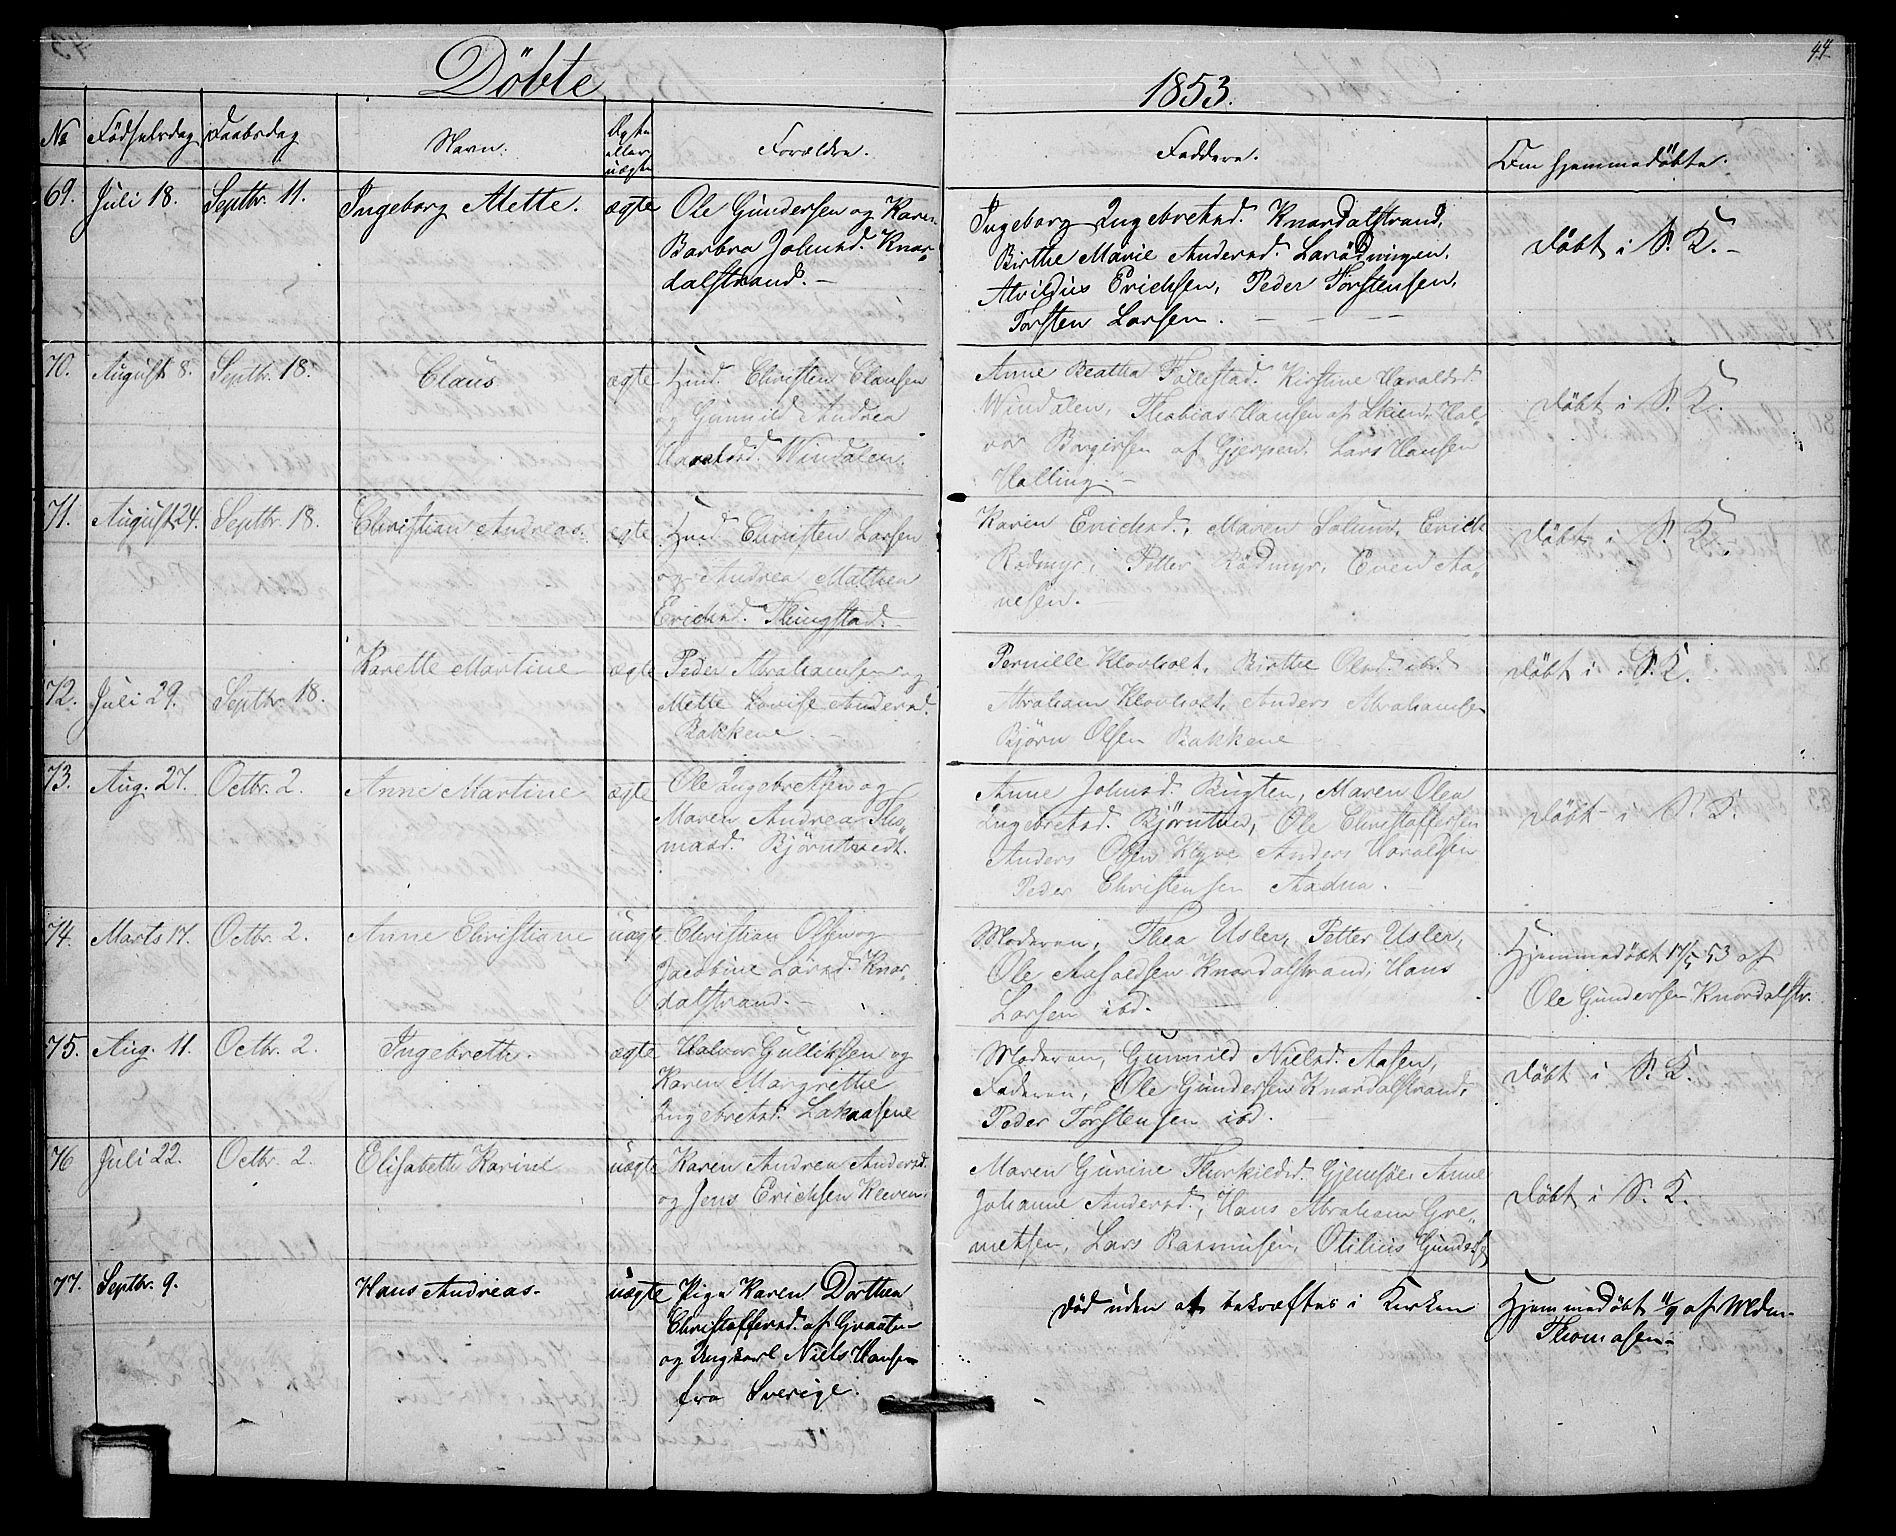 Döbte
1853.
44
No Födselsdag Daabsdag Navn. Ægte eller uægte Forældre. Faddere. Om hjemmedöbte.
69. Juli 18. Septbr. 11. Ingeborg Mette. ægte
Ole Gundersen og Karen
Barbra Johnsd. Knar-
dalstrand.
Ingeborg Ingebretsd. Knardalstrand,
Birthe Marie Andersd.
Alvildus Erichsen, Peder Torstensen,
Torsten Larsen.
Döbt i S. K.
70. August 8. Septbr. 18. Claus ægte
Hmd. Christen Clausen
og Gunnild Andrea
Haraldsd. Windalen.
Anne Beatha Follestad. Kirstine Haraldsd.
Windalen, Thobias Hansen af Skien, Hal-
vor Borgersen af Gjerpen, Lars Hansen
Halling.
Döbt i S. K.
71. August 24. Septbr. 18. Christian Andreas. ægte
Hmd. Christen Larsen
og Andrea Mathea
Erichsd. Flingstad.
Karen Erichsd., Maren Solum, Erich
Rødmyr, Petter Rødmyr, Even Aa-
nesen.
Döbt i S. K.
72. Juli 29. Septbr. 18. Karette Martine ægte
Peder Abrahamsen og
Mette Lovise Andersd.
Bakkene
Pernille Klovholt, Birthe Olsd. ibd.
Abraham Klovholt, Anders Abrahamsen
Björn Olsen Bakkene
Döbt i S. K.
73. Aug. 27. Octbr. 2. Anne Martine ægte
Ole Ingebretsen og
Maren Andrea Tho-
masd. Björntvedt.
Anne Johnsd. Bugten, Maren Olea
Ingebretsd. Björntvedt, Ole Christoffersen
Anders Olsen Klyve Anders Haraldsen
Peder Christensen Aadna.
Döbt i S. K.
74. Marts 17. Octbr. 2. Anne Christiane uægte
Christian Olsen og
Jacobine Larsd. Knar-
dalstrand.
Moderen, Thea Usler, Petter Usler,
Ole Aasoldsen Knardalstrand, Hans
Larsen ibd.
Hjemmedöbt 17/5 53 af
Ole Gundersen Knardalstr.
75. Aug. 11. Octbr. 2. Ingebrethe. ægte
Halvor Gulliksen og
Karen Margrethe
Ingebretsd. Lakaasene
Moderen, Gunnild Nielsd. Aasen,
Faderen, Ole Gundersen Knardalstrand,
Peder Torstensen ibd.
Döbt i S. K.
76 Juli 22. Octbr. 2. Elisabeth Karine uægte
Karen Andrea Andersd.
og Jens Erichsen Kleven.
Maren Gurine Thorkildsd. Gjemsøe, Anne
Johanne Andersd., Hans Abraham Gre-
nethsen, Lars Rasmusen, Otilius Gunders
Döbt i S. K.
77. Septbr. 9. Hans Andreas. uægte
Pige Karen Dorthea
Christoffersd. af Graaten
og Ungkarl Niels Hansen
fra Sverige.
Död uden at bekræftes i Kirken
Hjemmedöbt 11/9 af
Thomasen